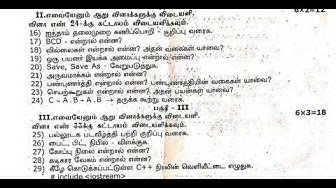 II.எவையேனும் ஆறு வினாக்களுக்கு விடையளி. 6x2=12
வினா எண் 24-க்கு கட்டாயம் விடையளிக்கவும்.
16) ஐந்தாம் தலைமுறை கணிப்பொறி - குறிப்பு வரைக.
17) BCD - என்றால் என்ன?
18) வில்லைகள் என்றால் என்ன? அதன் வகைகள் யாவை?
19) ஒரு பயனர் இயக்க அமைப்பு என்றால் என்ன?
20) Save, Save As - வேறுபடுத்துக.
21) அருவமாக்கம் என்றால் என்ன?
22) பண்புணர்த்தி என்றால் என்ன? பண்புணர்த்தியின் வகைகள் யாவை?
23) செயற்கூறுகள் என்றால் என்ன? அதன் பயன்கள் யாவை?
24) C = A . B + A . B -> தருக்க சுற்று வரைக.
பகுதி - III
III.எவையேனும் ஆறு வினாக்களுக்கு விடையளி. 6x3=18
வினா எண் 33க்கு கட்டாயம் விடையளிக்கவும்.
25) பல்லூடக படவீழ்த்தி பற்றி குறிப்பு வரைக.
26) பைட், பிட், நிபில் - விளக்குக.
27) கோப்பு நிலை என்றால் என்ன?
28) சுடிகார வேகம் என்றால் என்ன?
29) கீழே கொடுக்கப்பட்டுள்ள C++ நிரலின் வெளியீட்டை எழுதுக.
# include <iostream>